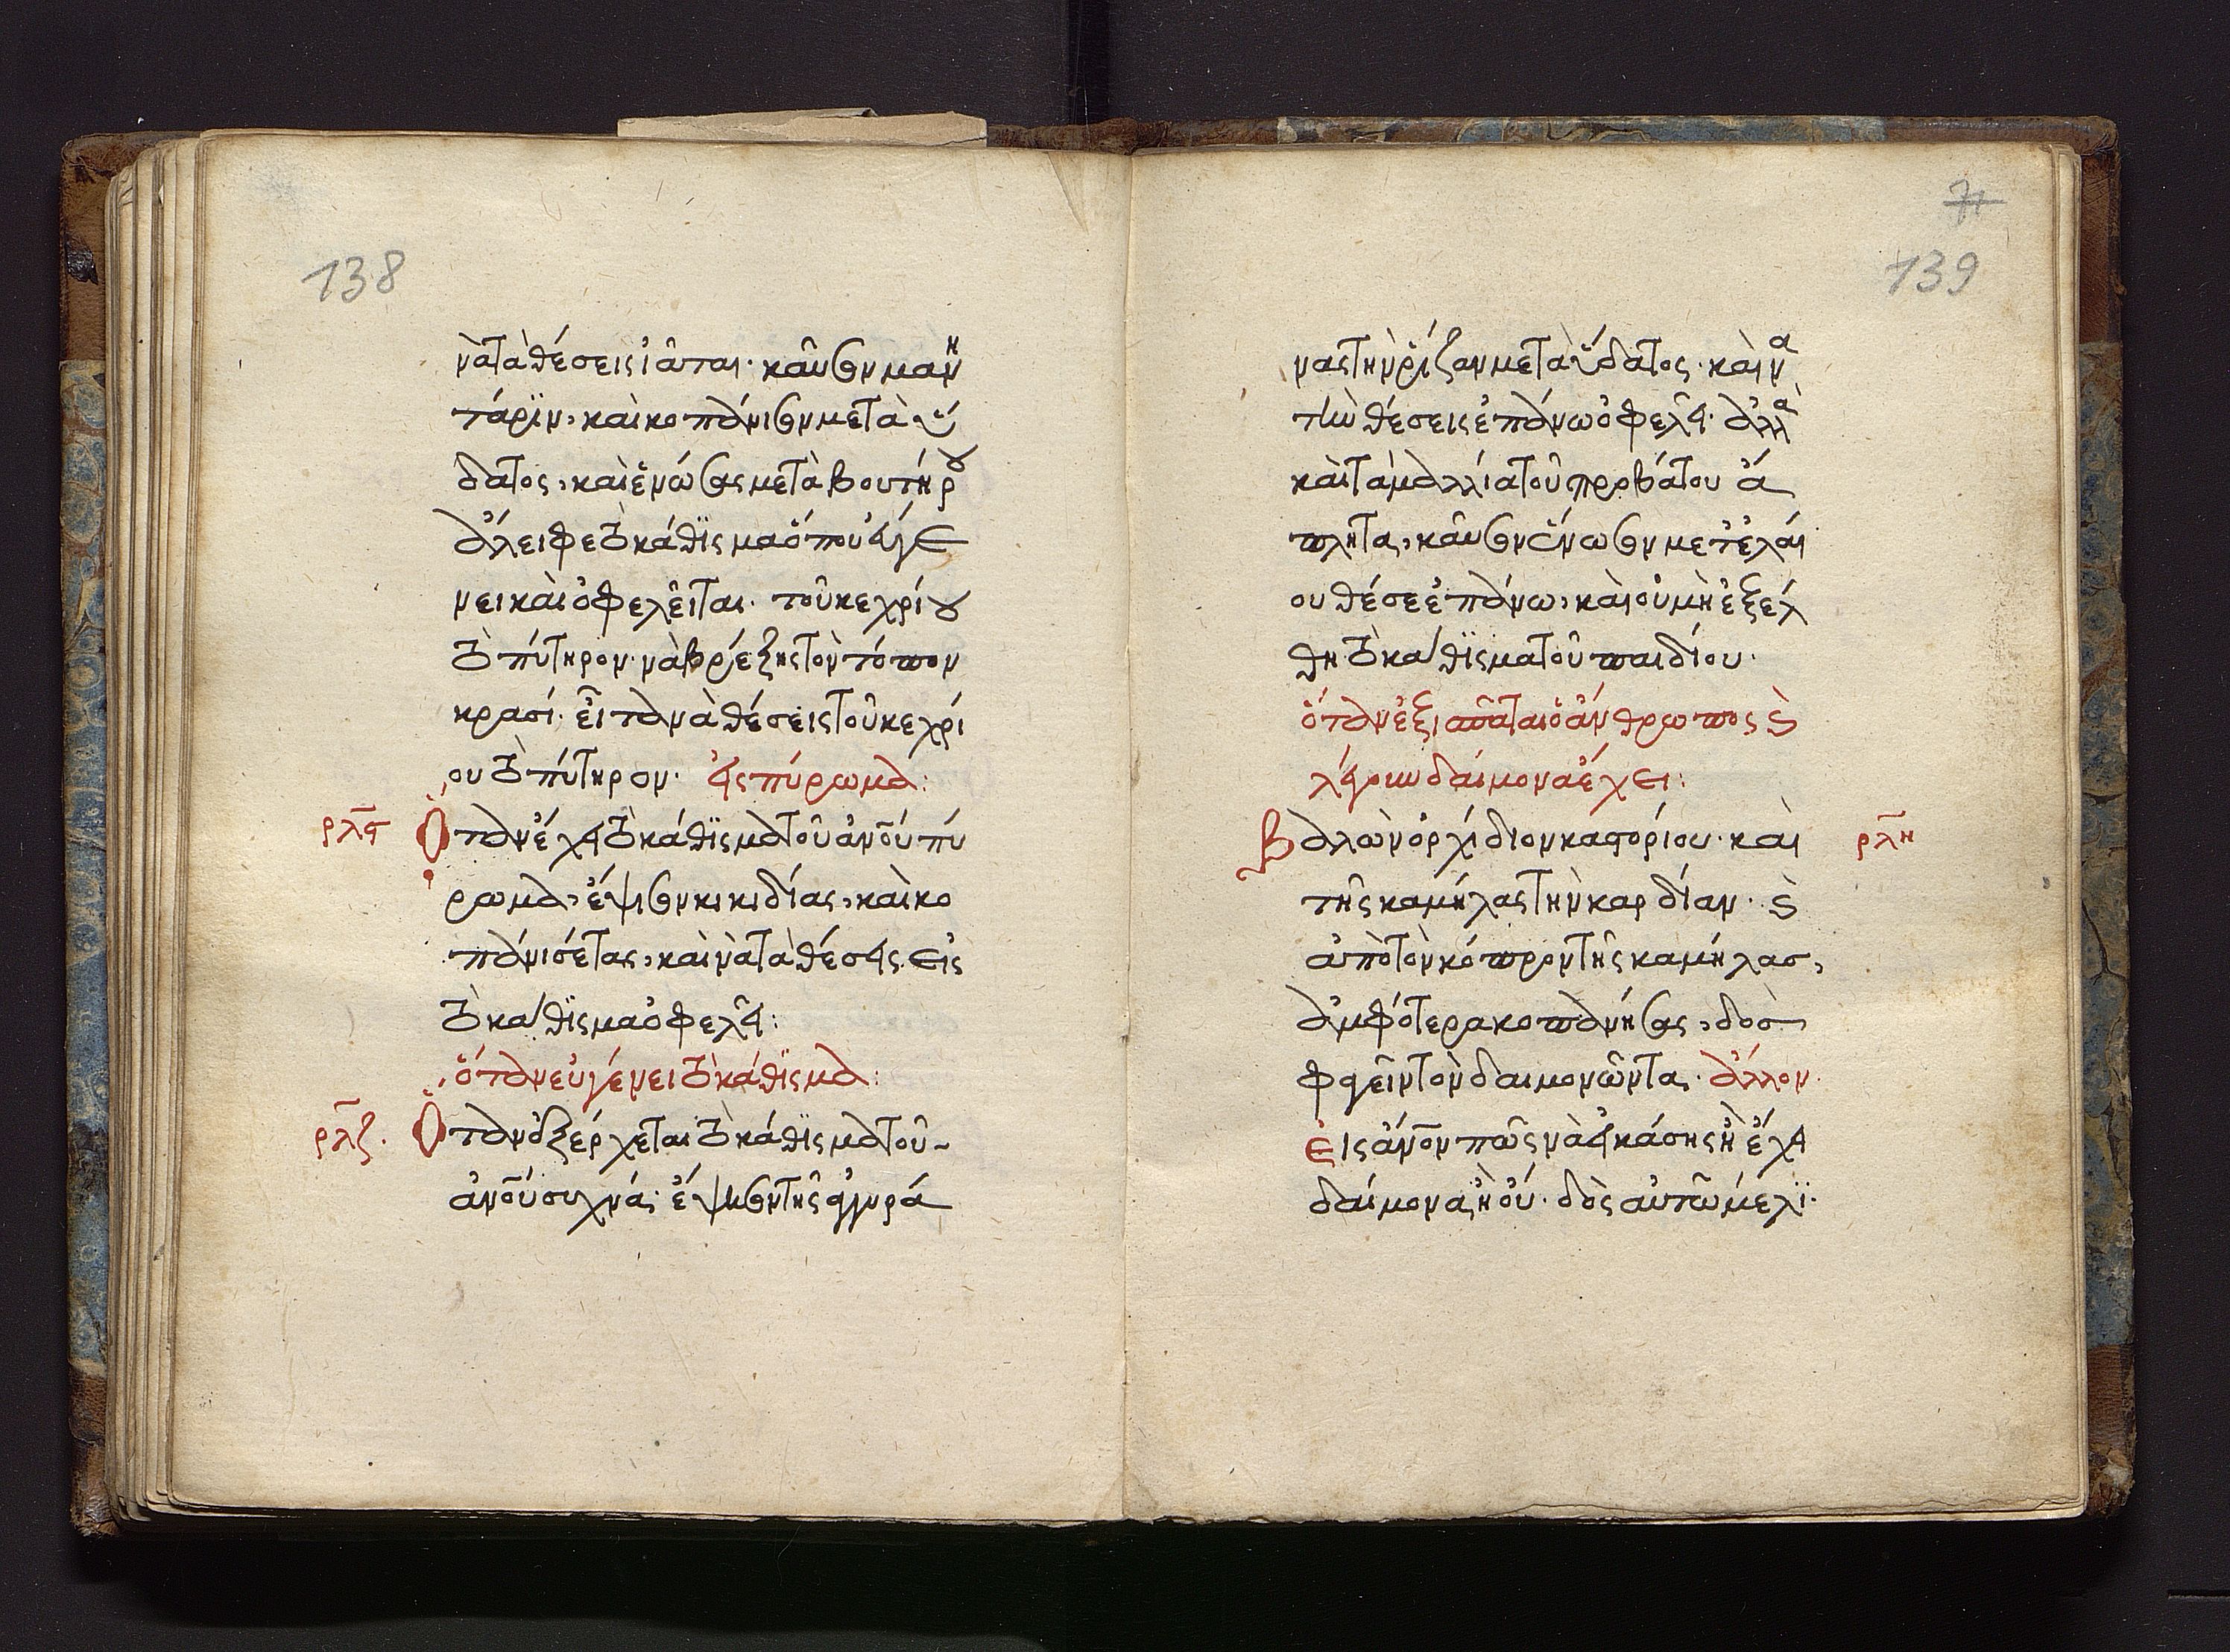 138
νὰ τὰ θέσεις ἰᾶται· καῦσον μανη
τάριν, καὶ κοπάνισον μετὰ ὕ
δατος, καὶ ἑνώσας μετὰ βουτήρου
ἄλειφε τὸ κάθϊσμα ὅπου εὐγέ
νει καὶ ὀφελεῖται. τοῦ κεχρίου
τὸ πύτηρον· νὰ βρέξης τὸν τόπον
κρασί. εἶτα νὰ θέσεις τοῦ κεχρί
ου τὸ πύτηρον. εἰς πύρωμα:
ρλϛ Ὅταν ἔχει τὸ κάθϊσμα τοῦ ἀνοῦ πύ
ρωμα, ἔψισον κικιδίας, καὶ κο
πάνισέ τας, καὶ νὰ τὰ θέσεις εἰς
τὸ κάθϊσμα ὀφελεῖ:
ὅταν εὐγένει τὸ κάθϊσμα:
ρλζ. Ὅταν ἐξέρχεται τὸ κάθϊσμα τοῦ
ἀνοῦ συχνά· ἔψησον τῆς ἀγρά
71
139
νας τὴν ῥίζαν μετὰ ὕδατος. καὶ να
τὴν θέσεις ἐπάνω ὀφελεῖ. ἀλλὰ
καὶ τὰ μαλλία τοῦ προβάτου ἄ
πλητα, καῦσον ἕνωσον μετ' ἐλαί
ου θέσε ἐπάνω, καὶ οὐ μὴ ἐξέλ
θη τὸ κάθϊσμα τοῦ παιδίου.
ὅταν ἐξιπᾶται ὁ ἄνθρωπος καὶ
λέγουν δαίμονα ἔχει:
Βαλὼν ὀρχίδιον καστορίου. καὶ ρλη
τῆς καμήλας τὴν καρδίαν. καὶ
ἀπὸ τὸν κόπρον τῆς καμήλας,
ἀμφότερα κοπανήσας, δος
φαγεῖν τὸν δαιμονῶντα. ἄλλον.
Εἰς ἄνον πῶς νὰ εἰκάσης ἢ ἔχει
δαίμονα, ἢ οὔ. δὸς αὐτῶ μέλϊ.